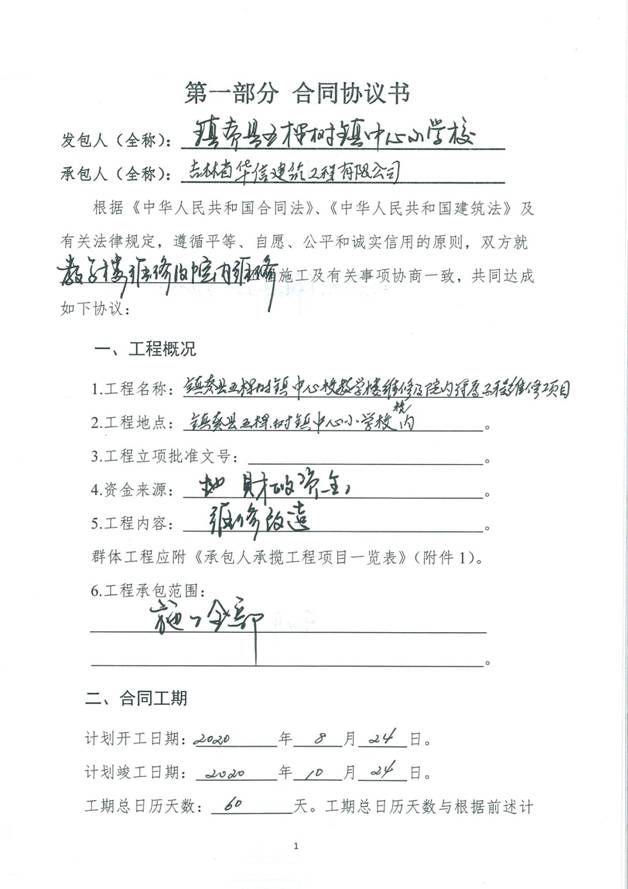 第一部分 合同协议书
发包人（全称）：镇赉县五棵树镇中心小学校
承包人（全称）：吉林省华信建筑工程有限公司
根据《中华人民共和国合同法》、《中华人民共和国建筑法》及
有关法律规定，遵循平等、自愿、公平和诚实信用的原则，双方就
教学楼维修及院内维修施工及有关事项协商一致，共同达成
如下协议：
一、工程概况
1.工程名称：镇赉县五棵树镇中心校教学楼维修及院内工程维修项目
2.工程地点：镇赉县五棵树镇中心小学校校内。
3.工程立项批准文号：。
4.资金来源：财政资金。
5.工程内容：维修改造。
群体工程应附《承包人承揽工程项目一览表》（附件1）。
6.工程承包范围：
施工全部
。
二、合同工期
计划开工日期：2020年8月24日。
计划竣工日期：2020年10月24日。
工期总日历天数：60天。工期总日历天数与根据前述计
1